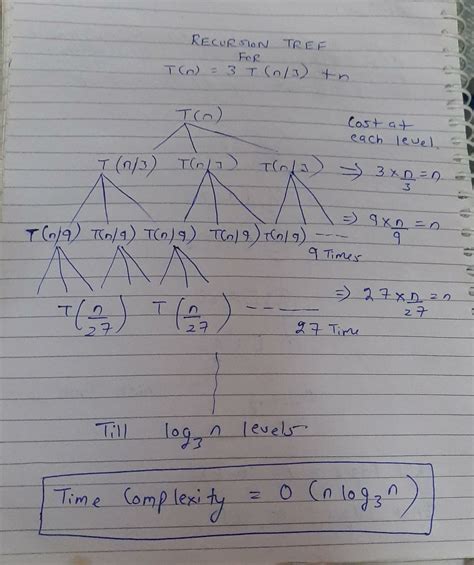 RECURSION TREE
FOR
T(n) = 3 T(n/3) + n
T(n)
Cost at
each level.
T(n/3) T(n/3) T(n/3) ⇒ 3 × n/3 = n
T(n/9) T(n/9) T(n/9) T(n/9) T(n/9) ---- ⇒ 9 × n/9 = n
9 Times
T(n/27) T(n/27) ------- ⇒ 27 × n/27 = n
27 Time
Till log₃n levels.
Time Complexity = O (n log₃n)